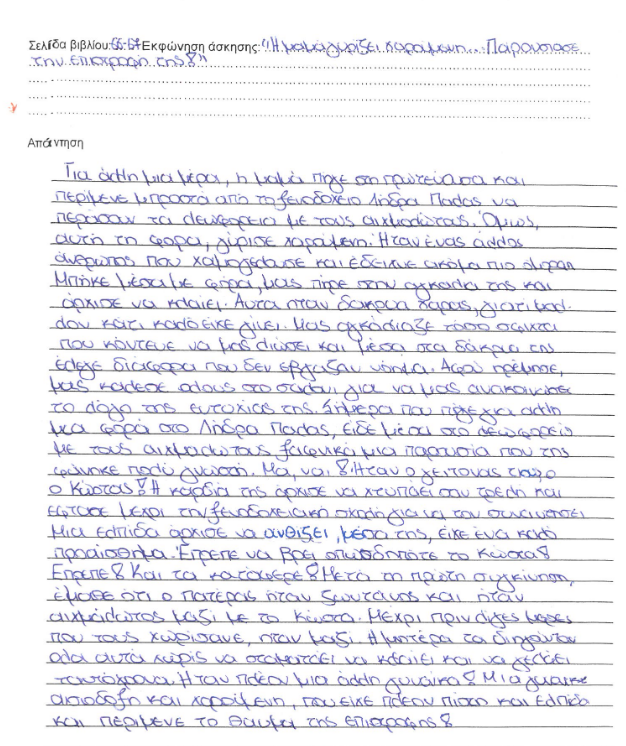 Σελίδα βιβλίου: 66-67 Εκφώνηση άσκησης: "Η μαμά γυρίζει χαρούμενη... Παρουσίασε
την επιστροφή της!"
Απάντηση
Για άλλη μια μέρα, η μαμά πήγε στη πρωτεύουσα και
περίμενε μπροστά από το ξενοδοχείο Λήδρα Πάλας να
περάσουν τα λεωφορεία με τους αιχμαλώτους. Όμως,
αυτή τη φορά, γύρισε χαρούμενη. Ήταν ένας άλλος
άνθρωπος που χαμογελούσε και έδειχνε ακόμα πιο όμορφη
Μπήκε μέσα με φόρα, μας πήρε στην αγκαλιά της και
άρχισε να κλαίει. Αυτά ήταν δάκρυα χαράς, γιατί μάλ-
λον κάτι καλό είχε γίνει. Μας αγκάλιαζε τόσο σφιχτά
που κόντευε να μας λιώσει και μέσα στα δάκρυα της
έλεγε διάφορα που δεν έβγαζαν νόημα. Αφού ηρέμησε,
μας κάλεσε όλους στο σαλόνι για να μας ανακοινώσει
το λόγο της ευτυχίας της. Σήμερα που πήγε για άλλη
μια φορά στο Λήδρα Πάλας, είδε μέσα στο λεωφορείο
με τους αιχμαλώτους ξαφνικά μια παρουσία που της
φώνηκε πολύ γνωστή. Μα, ναι! Ήταν ο γείτονας
ο Κώστας! Η καρδιά της άρχισε να χτυπάει σαν τρελή και
έφτασε μέχρι την ξενοδοχειακή σχολή για να τον συναντήσει
Μια ελπίδα άρχισε να ανθίζει μέσα της, είχε ένα καλό
προαίσθημα. Έπρεπε να βρει οπωσδήποτε το Κώστα!
Έπρεπε! Και τα κατάφερε! Μετά τη πρώτη συγκίνηση,
έμαθε ότι ο πατέρας ήταν ζωντανός και ήταν
αιχμάλωτος μαζί με το Κώστα. Μέχρι πριν λίγες μέρες
που τους χώρισανε, ήταν μαζί. Η μητέρα τα διηγιόνταν
όλα αυτά χωρίς να σταματάει να κλαίει και να γελάει
ταυτόχρονα. Ήταν πλέον μια άλλη γυναίκα! Μια γυναίκα
αισιόδοξη και χαρούμενη, που είχε πλέον πίστη και ελπίδα
και περίμενε το θαύμα της επιστροφής!